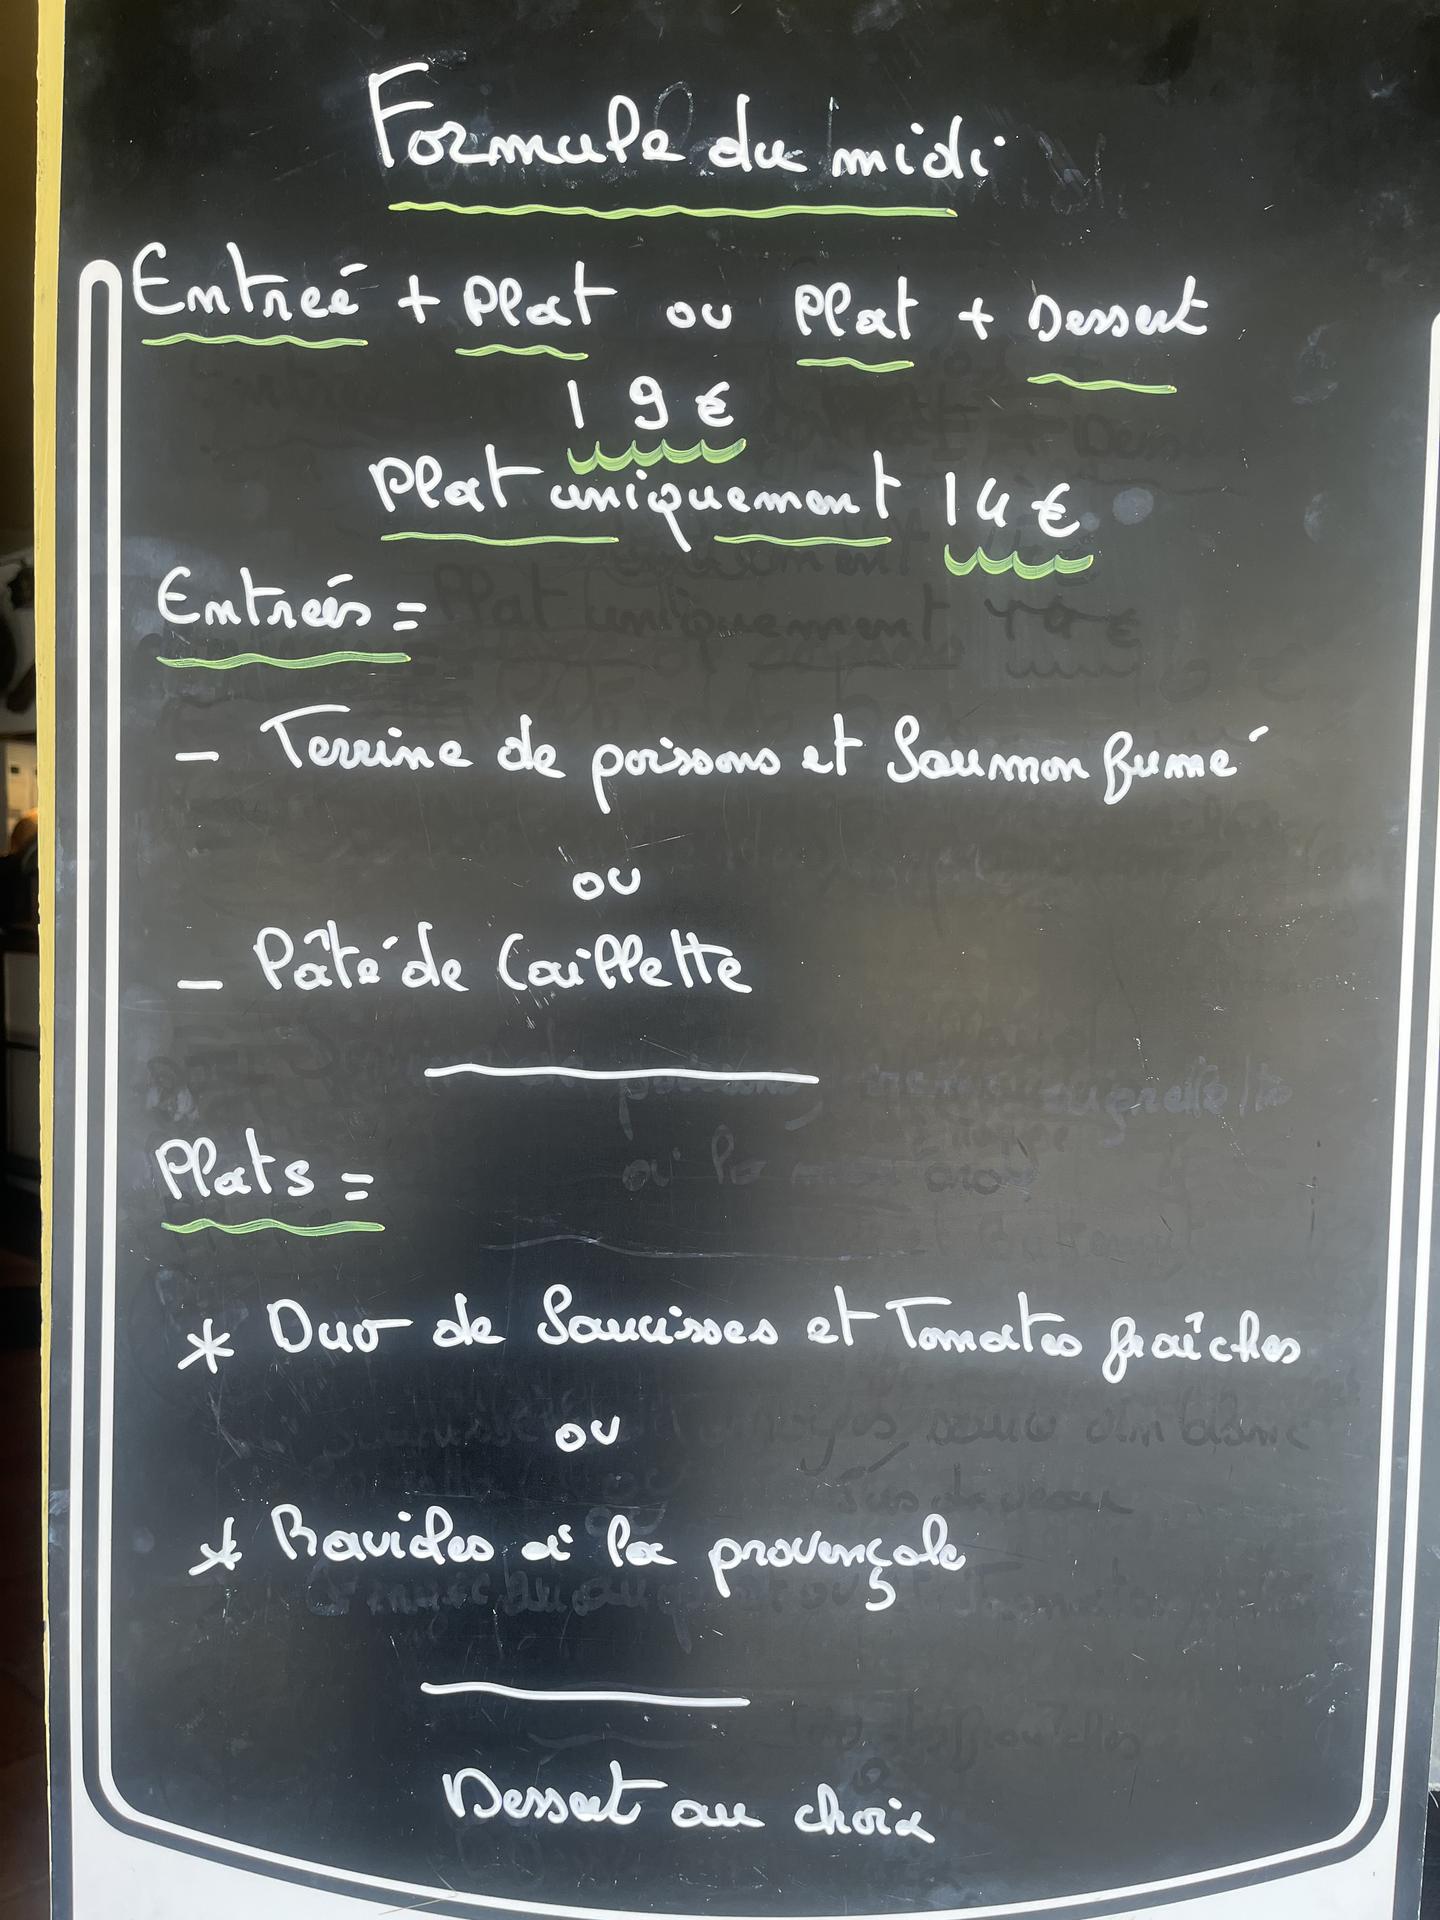 Formule du midi
Entreé + Plat ou Plat + Dessert
19€
Plat uniquement 14€
Entreés =
- Terrine de poissons et Saumon fumé
ou
- Pâté de Caillette
Plats =
* Duo de Saucisses et Tomates fraîches
ou
* Ravioles à la provençale
Dessert au choix